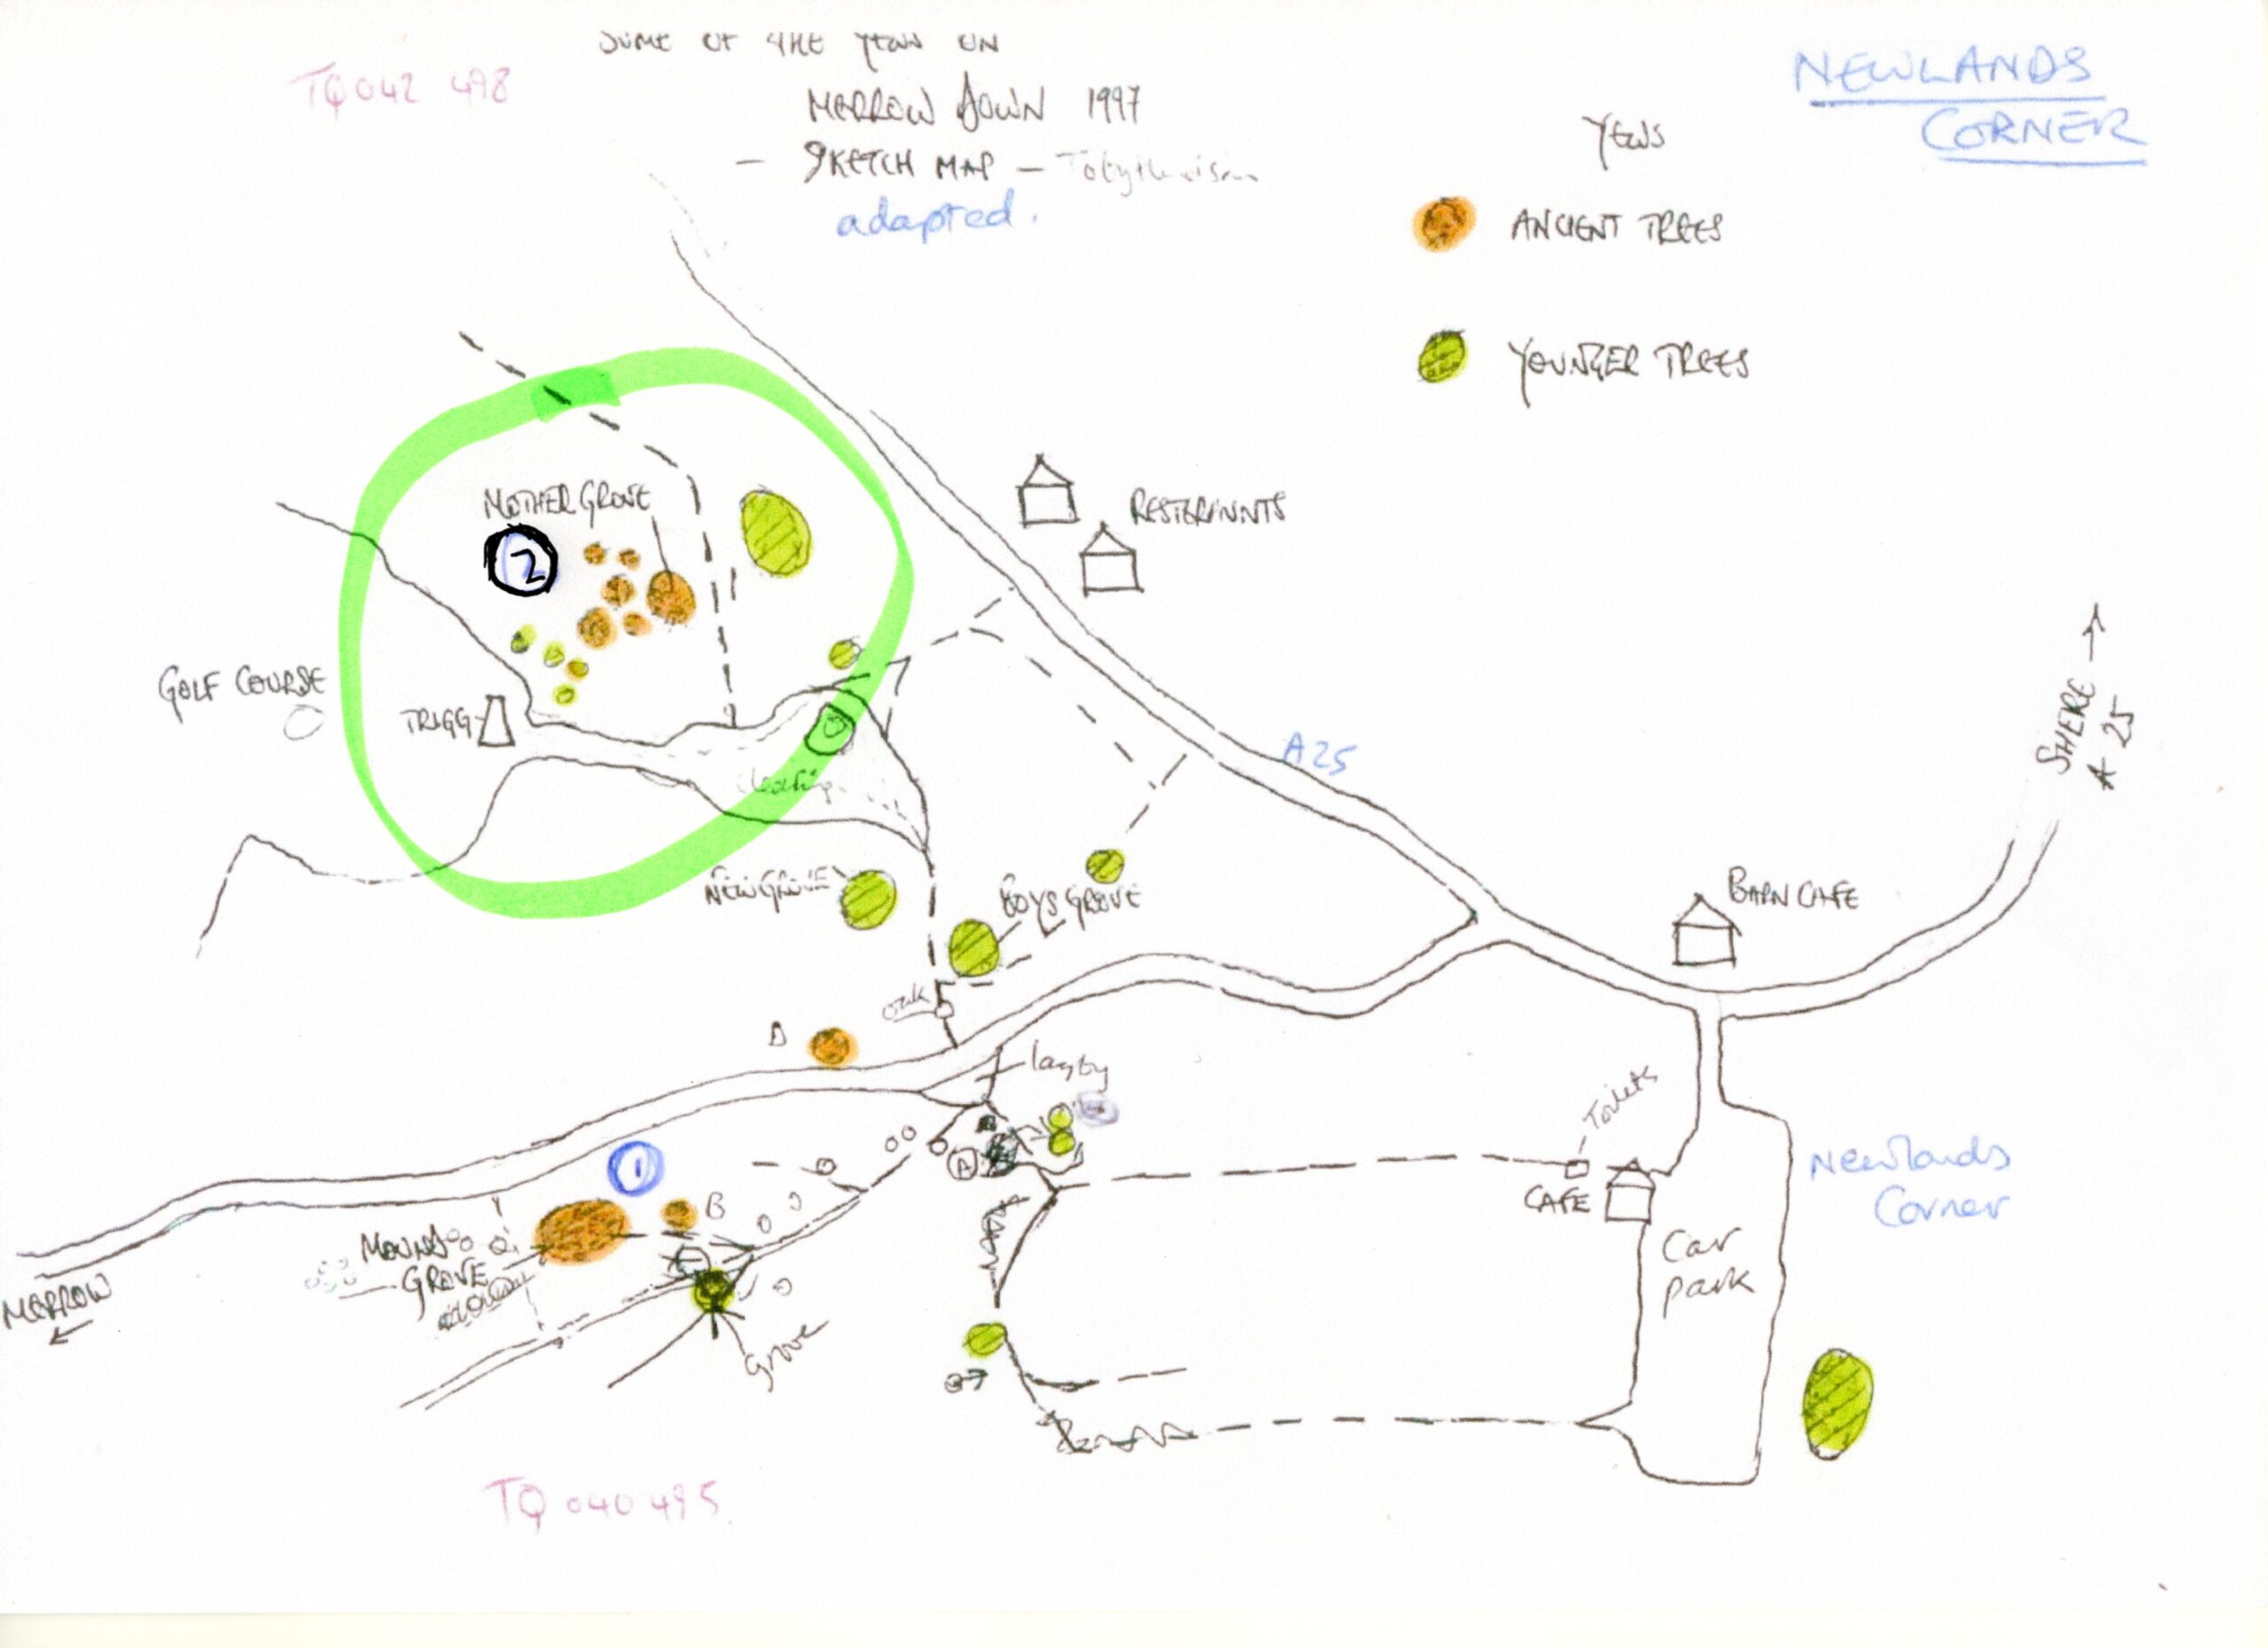 SOME OF THE YEWS ON
MERROW DOWN 1997
— SKETCH MAP —
adapted.
TQ 042 498
NEWLANDS
CORNER
YEWS
ANCIENT TREES
YOUNGER TREES
MOTHER GROVE
2
RESTERANTS
GOLF COURSE
TRIGG
clearing
A25
SHERE →
A 25
NEW GROVE
BOYS GROVE
BARN CAFE
oak
D
layby
Toilets
1
A
B
MOUND
GROVE
CAFE
Newlands
Corner
Car
park
MERROW
←
grove
TQ 040 495